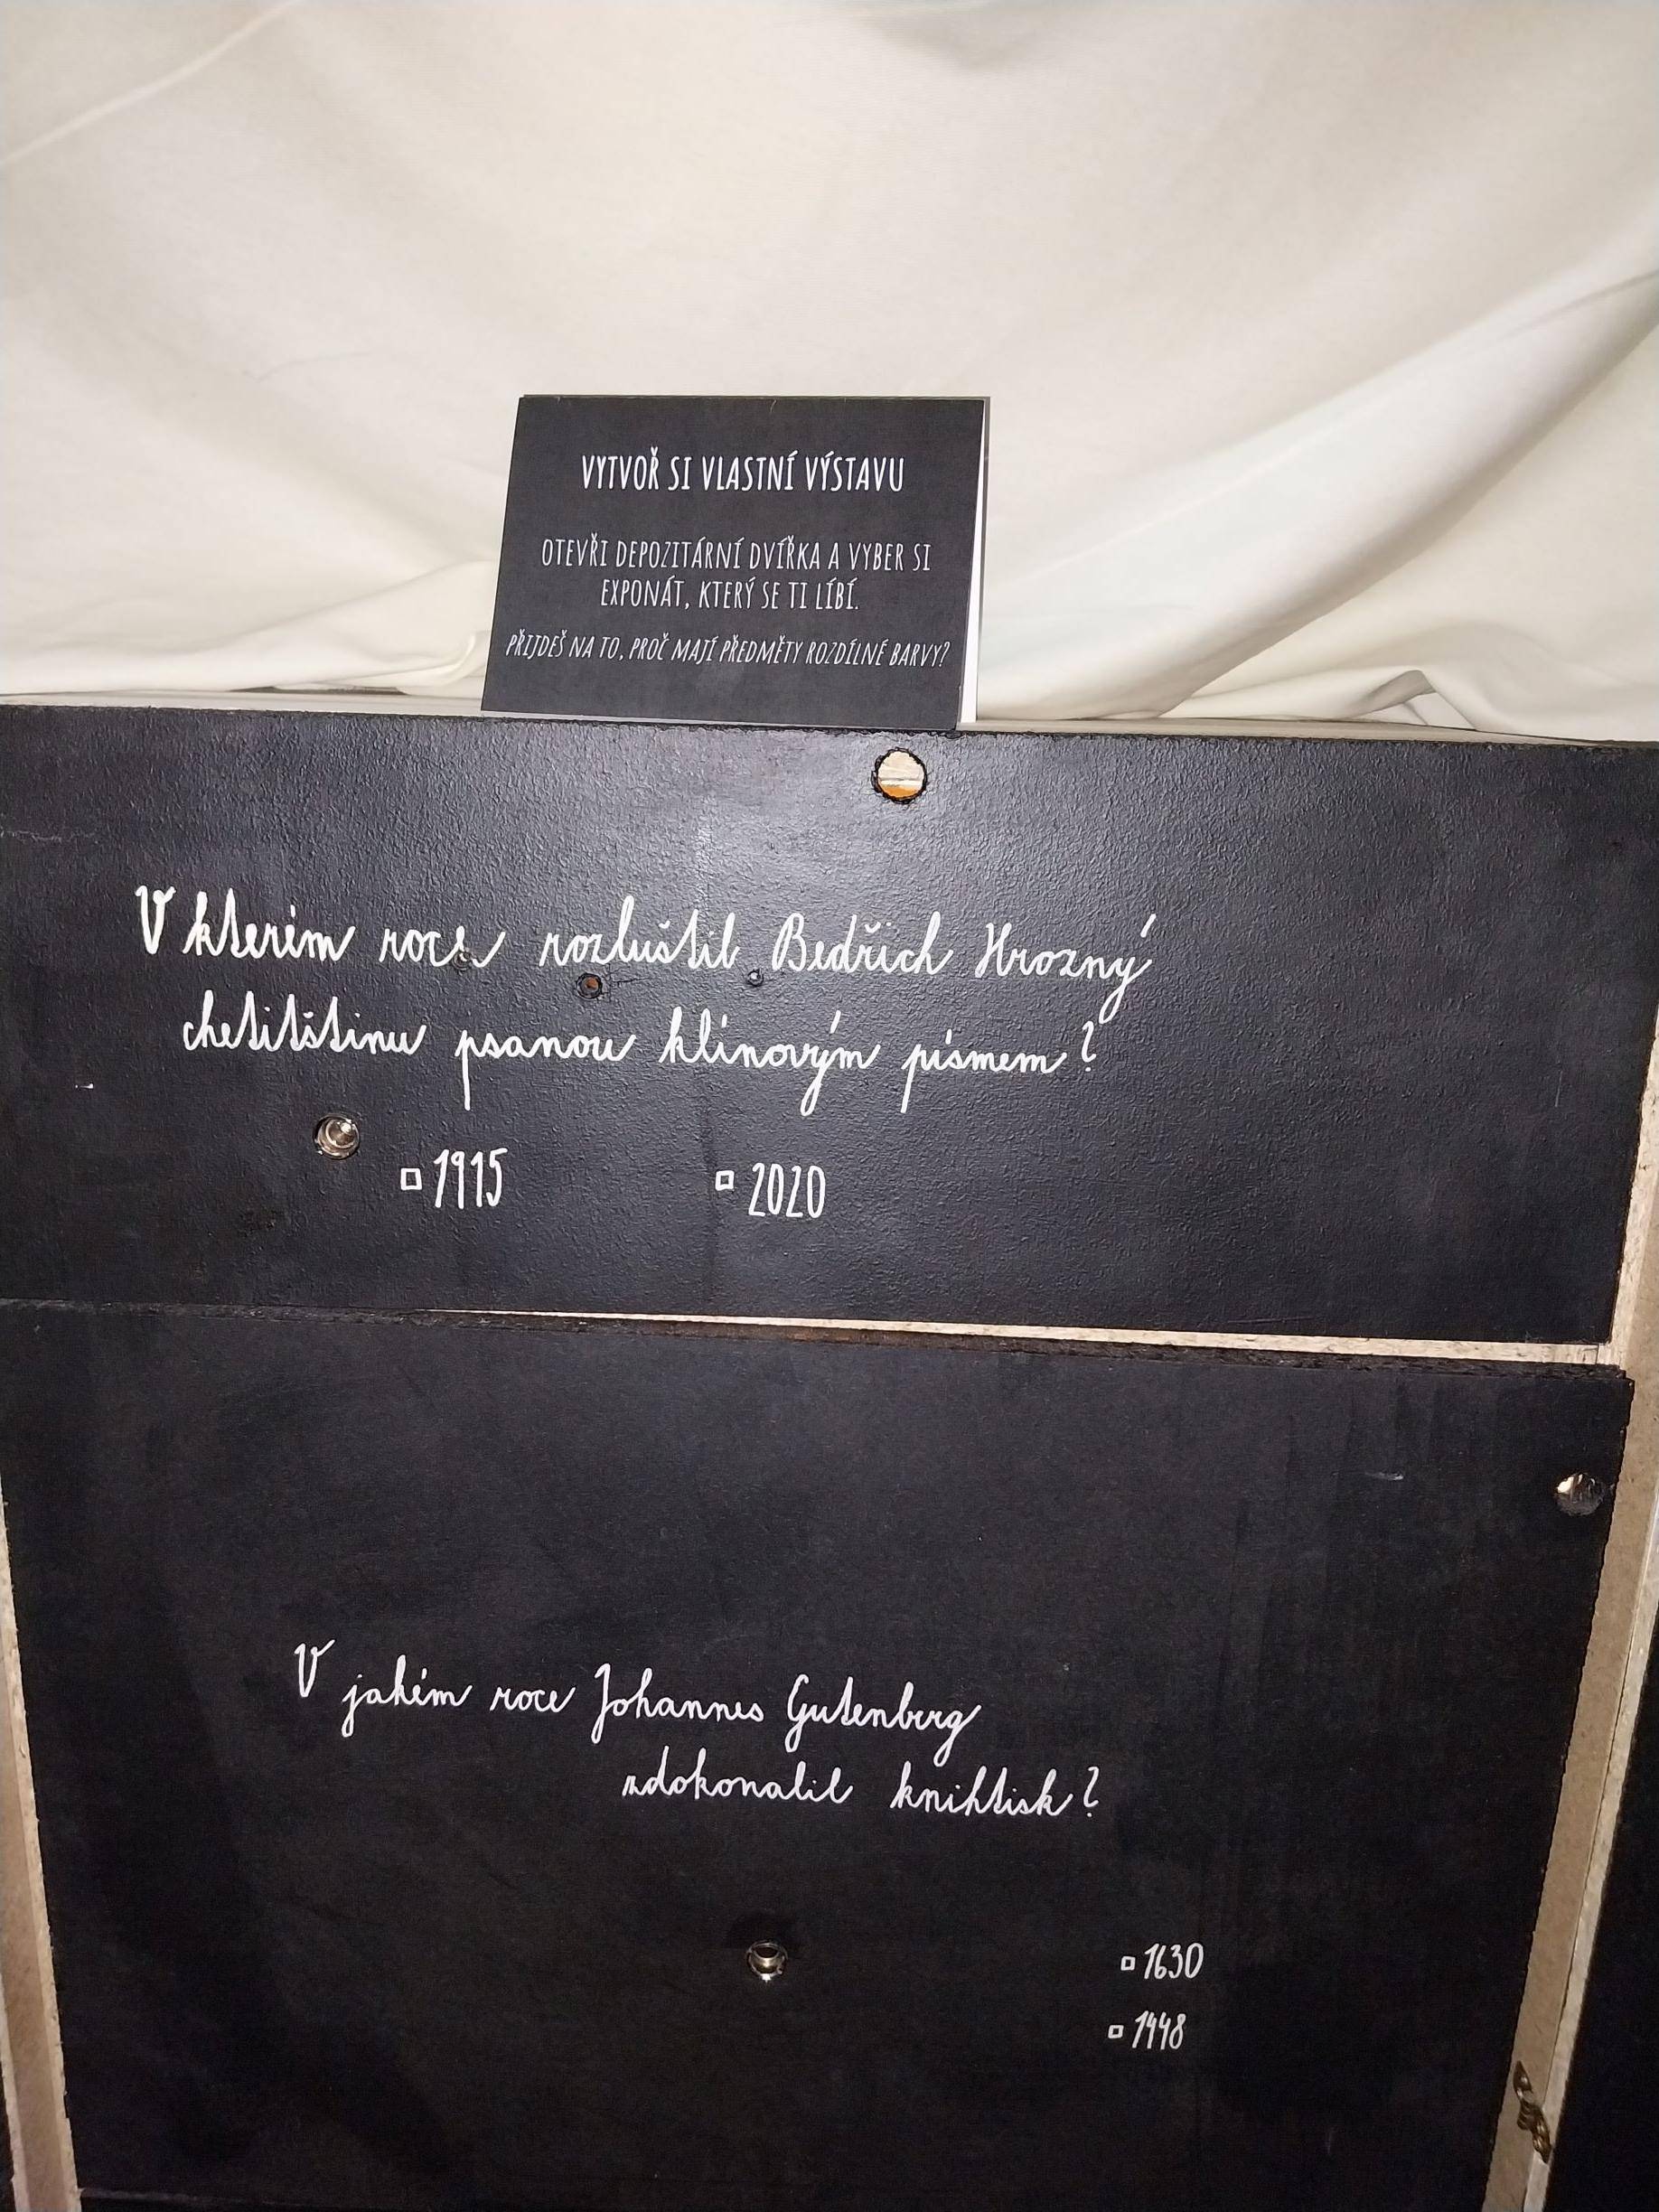 VYTVOŘ SI VLASTNÍ VÝSTAVU
OTEVŘI DEPOZITÁRNÍ DVÍŘKA A VYBER SI
EXPONÁT, KTERÝ SE TI LÍBÍ.
PŘIJDEŠ NA TO, PROČ MAJÍ PŘEDMĚTY ROZDÍLNÉ BARVY?
V kterém roce rozluštil Bedřich Hrozný
chetitštinu psanou klínovým písmem?
□ 1915 □ 2020
V jakém roce Johannes Gutenberg
zdokonalil knihtisk?
□ 1630
□ 1448